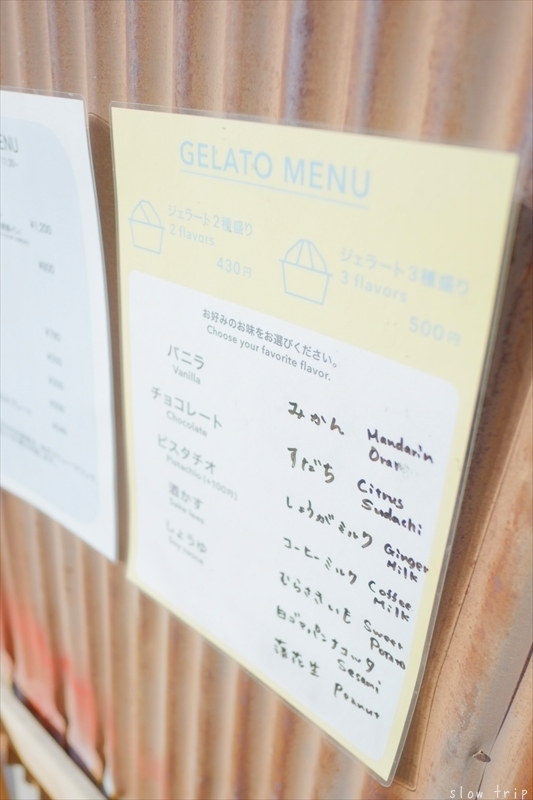 ENU
¥1,200
¥800
GELATO MENU
ジェラート2種盛り
2 flavors
430円
ジェラート3種盛り
3 flavors
500円
お好みのお味をお選びください。
Choose your favorite flavor.
バニラ
Vanilla
チョコレート
Chocolate
ピスタチオ
Pistachio (+100円)
酒かす
Sake lees
しょうゆ
Soy sauce
みかん Mandarin
Oran
すだち Citrus
Sudachi
しょうがミルク Ginger
Milk
コーヒーミルク Coffee
Milk
むらさきいも Sweet
Potato
白ゴマパンナコッタ
Sesami
落花生 Peanut
slow trip